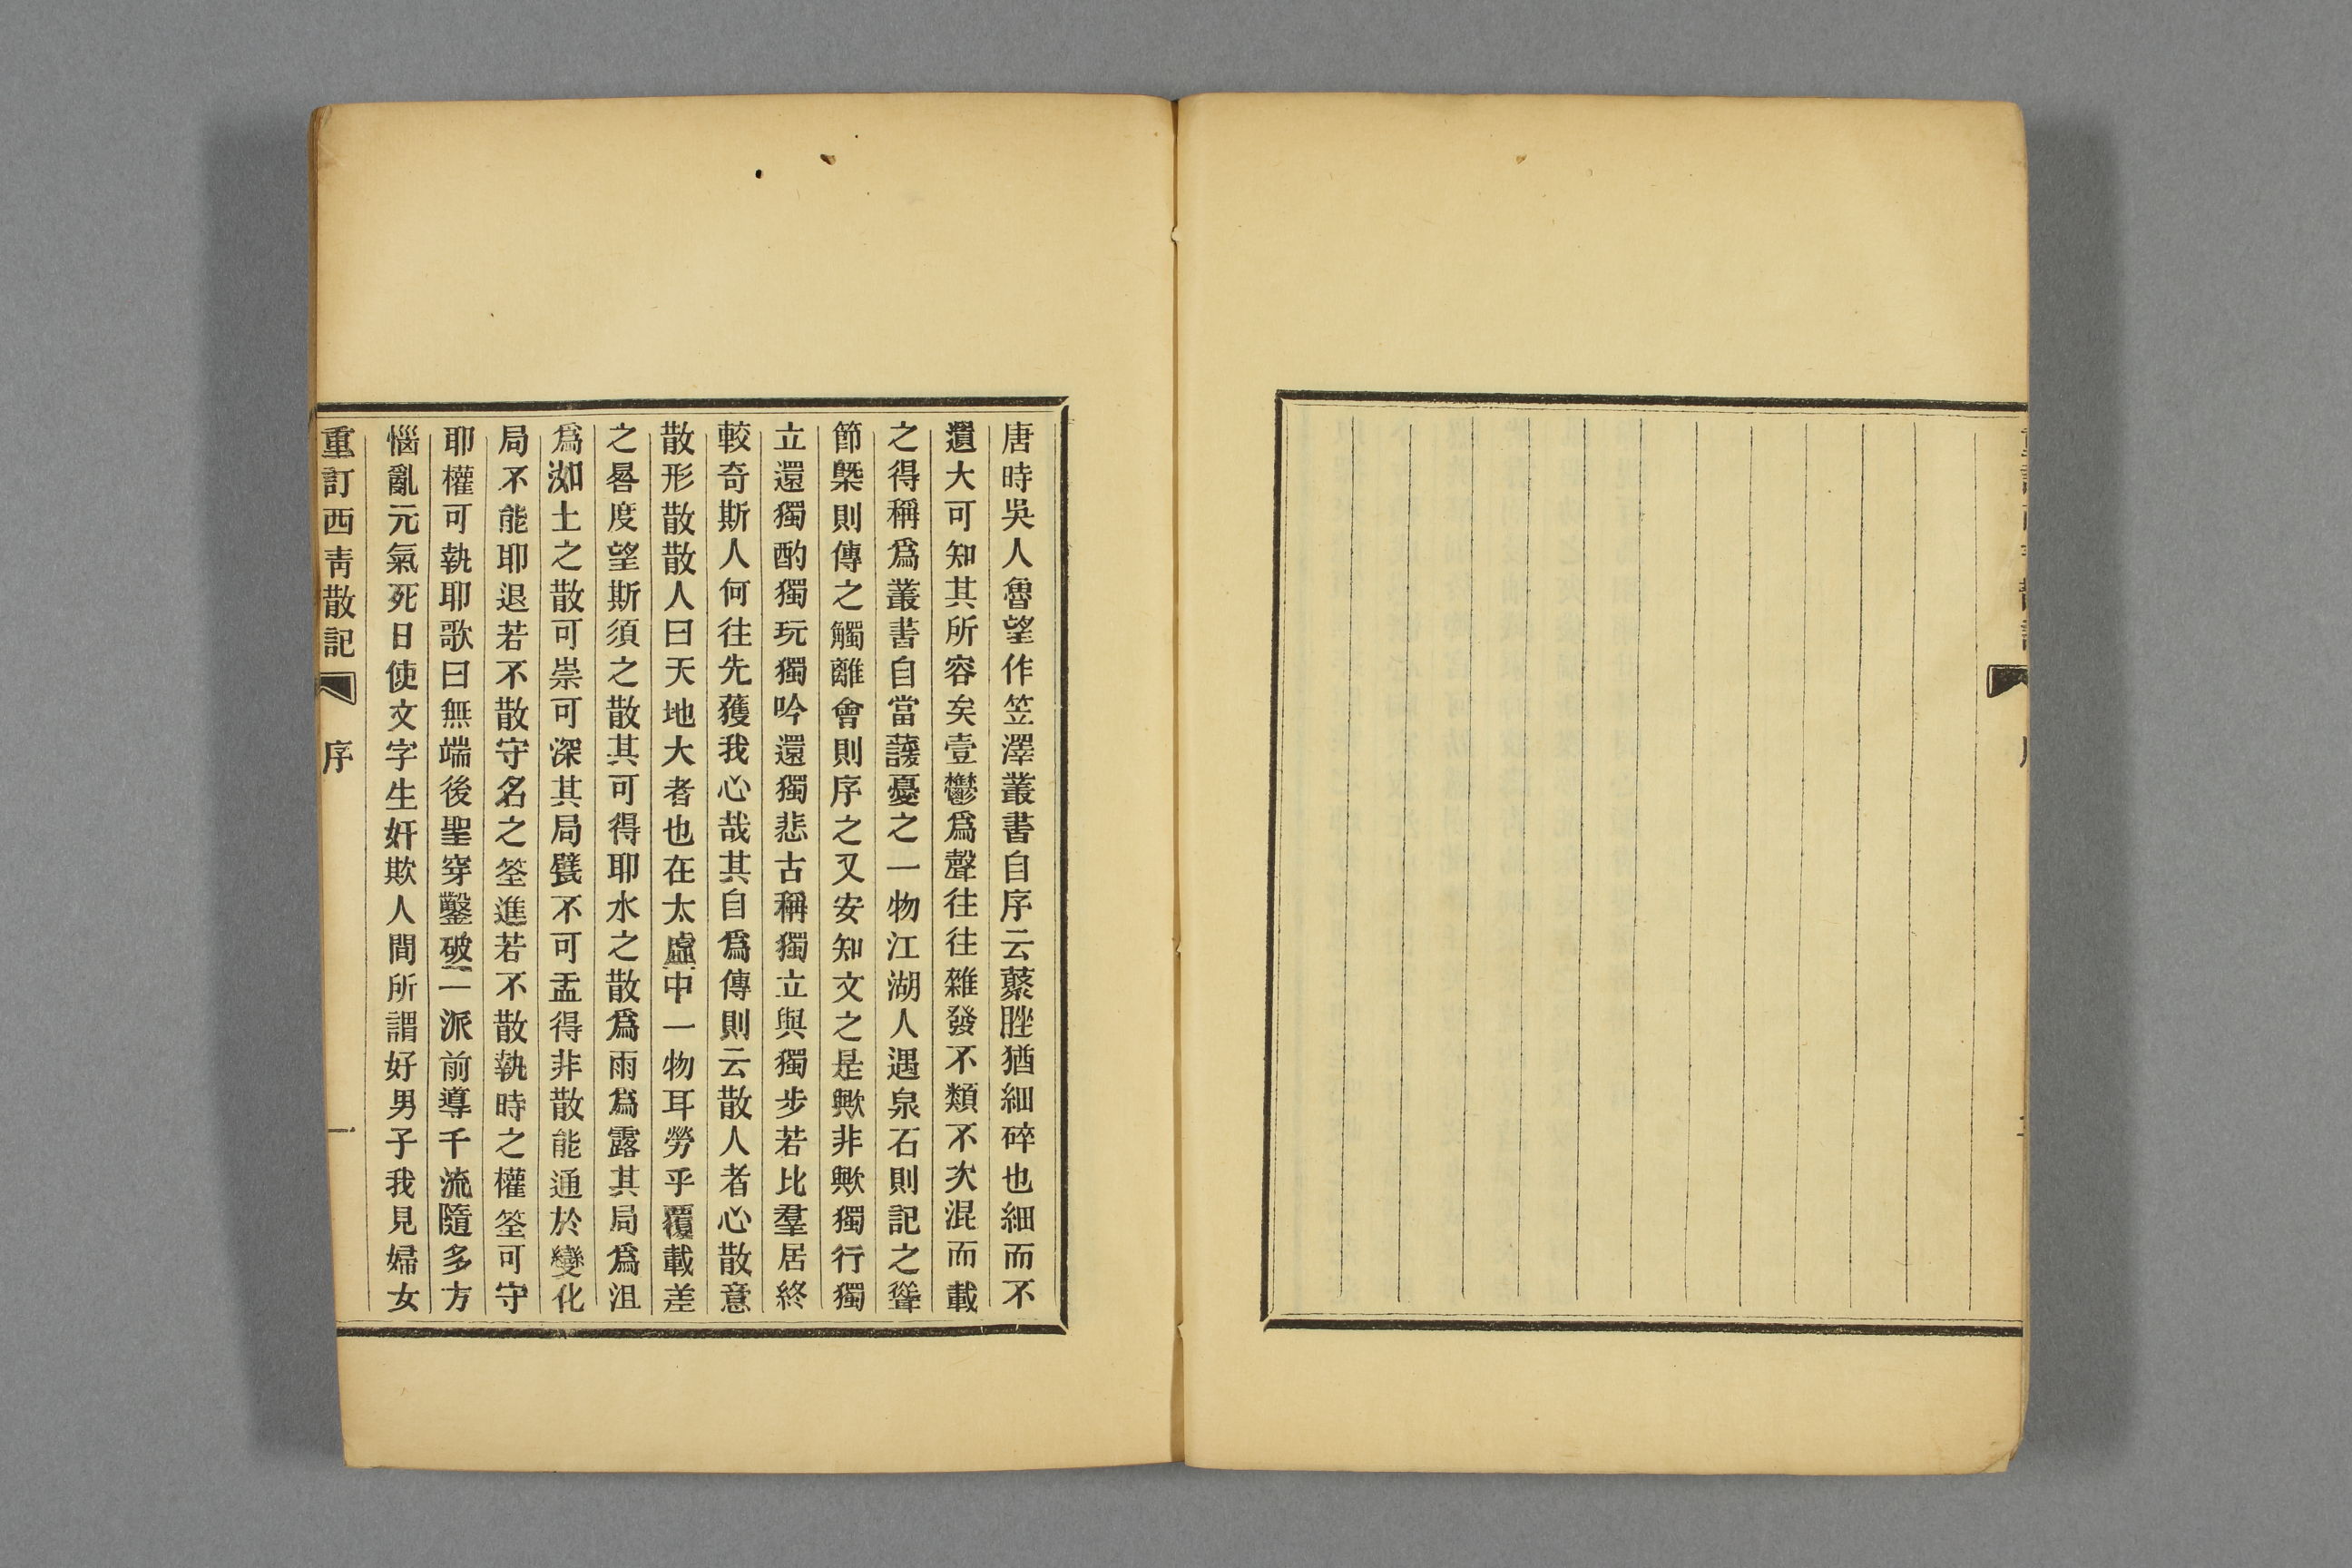 唐時吳人魯望作笠澤叢書自序云藂脞猶細碎也細而不
遺大可知其所容矣壹鬱爲聲往往雜發不類不次混而載
之得稱爲叢書自當諼憂之一物江湖人遇泉石則記之聳
節槩則傳之觸離會則序之又安知文之是歟非歟獨行獨
立還獨酌獨玩獨吟還獨悲古稱獨立與獨步若比羣居終
較奇斯人何往先獲我心哉其自爲傳則云散人者心散意
散形散散人曰天地大者也在太虛中一物耳勞乎覆載差
之晷度望斯須之散其可得耶水之散爲雨爲露其局爲沮
爲洳土之散可崇可深其局甓不可盂得非散能通於變化
局不能耶退若不散守名之筌進若不散執時之權筌可守
耶權可執耶歌曰無端後聖穿鑿破一派前導千流隨多方
惱亂元氣死日使文字生奸欺人間所謂好男子我見婦女
重訂西青散記 序 一